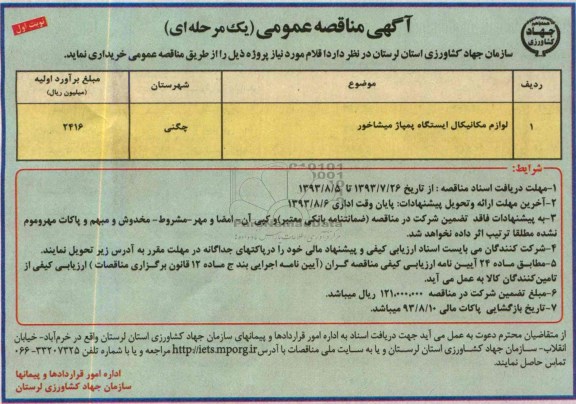 آگهی مناقصه عمومی (یک مرحله ای)
نوبت اول
جهاد کشاورزی
سازمان جهاد کشاورزی استان لرستان در نظر دارد؛ اقلام مورد نیاز پروژه ذیل را از طریق مناقصه عمومی خریداری نماید.
ردیف موضوع شهرستان مبلغ برآورد اولیه (میلیون ریال)
۱ لوازم مکانیکال ایستگاه پمپاژ میشاخور چگنی ۲۴۱۶
شرایط:
۱-مهلت دریافت اسناد مناقصه : از تاریخ ۱۳۹۳/۷/۲۶ تا ۱۳۹۳/۸/۵
۲-آخرین مهلت ارائه وتحویل پیشنهادات: پایان وقت اداری ۱۳۹۳/۸/۶
۳-به پیشنهادات فاقد تضمین شرکت در مناقصه (ضمانتنامه بانکی معتبر)و کپی آن- امضا و مهر-مشروط- مخدوش و مبهم و پاکات مهروموم
نشده مطلقا ترتیب اثر داده نخواهد شد.
۴-شرکت کنندگان می بایست اسناد ارزیابی کیفی و پیشنهاد مالی خود را درپاکتهای جداگانه در مهلت مقرر به آدرس زیر تحویل نمایند.
۵-مطابق ماده ۲۴ آیین نامه ارزیابی کیفی مناقصه گران (آیین نامه اجرایی بند ج ماده ۱۲ قانون برگزاری مناقصات ) ارزیابی کیفی از
تامین‌کنندگان کالا به عمل می آید.
۶-مبلغ تضمین شرکت در مناقصه ۱۲۱،۰۰۰،۰۰۰ ریال میباشد.
۷-تاریخ بازگشایی پاکات مالی ۹۳/۸/۱۰ میباشد.
از متقاضیان محترم دعوت به عمل می آید جهت دریافت اسناد به اداره امور قراردادها و پیمانهای سازمان جهاد کشاورزی استان لرستان واقع در خرم‌آباد- خیابان
انقلاب- سازمان جهاد کشاورزی استان لرستان و یا به سایت ملی مناقصات با آدرس http://iets.mporg.ir مراجعه و یا با شماره تلفن ۳۳۲۰۷۳۲۵-۰۶۶
تماس حاصل نمایند.
اداره امور قراردادها و پیمانها
سازمان جهاد کشاورزی لرستان